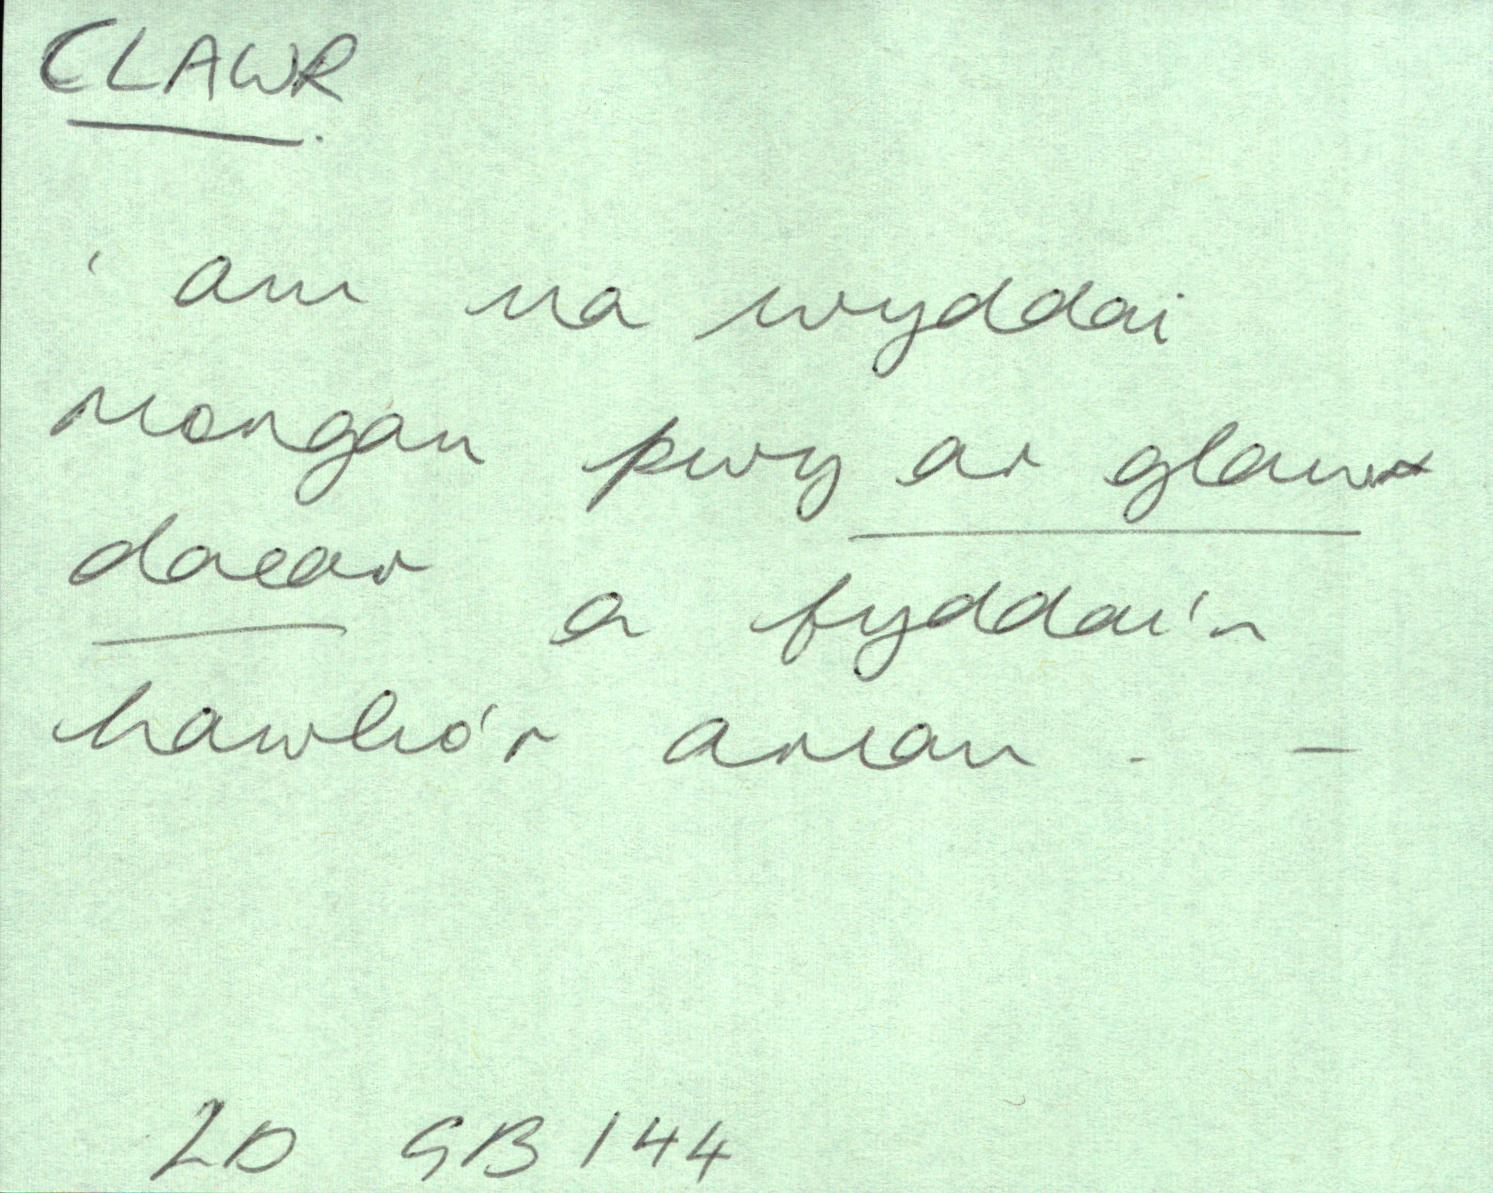 CLAWR
‘ am na wyddai
Morgan pwy ar glawr
daear a fyddai'n
hawlio'r arian . —
LD GB 144